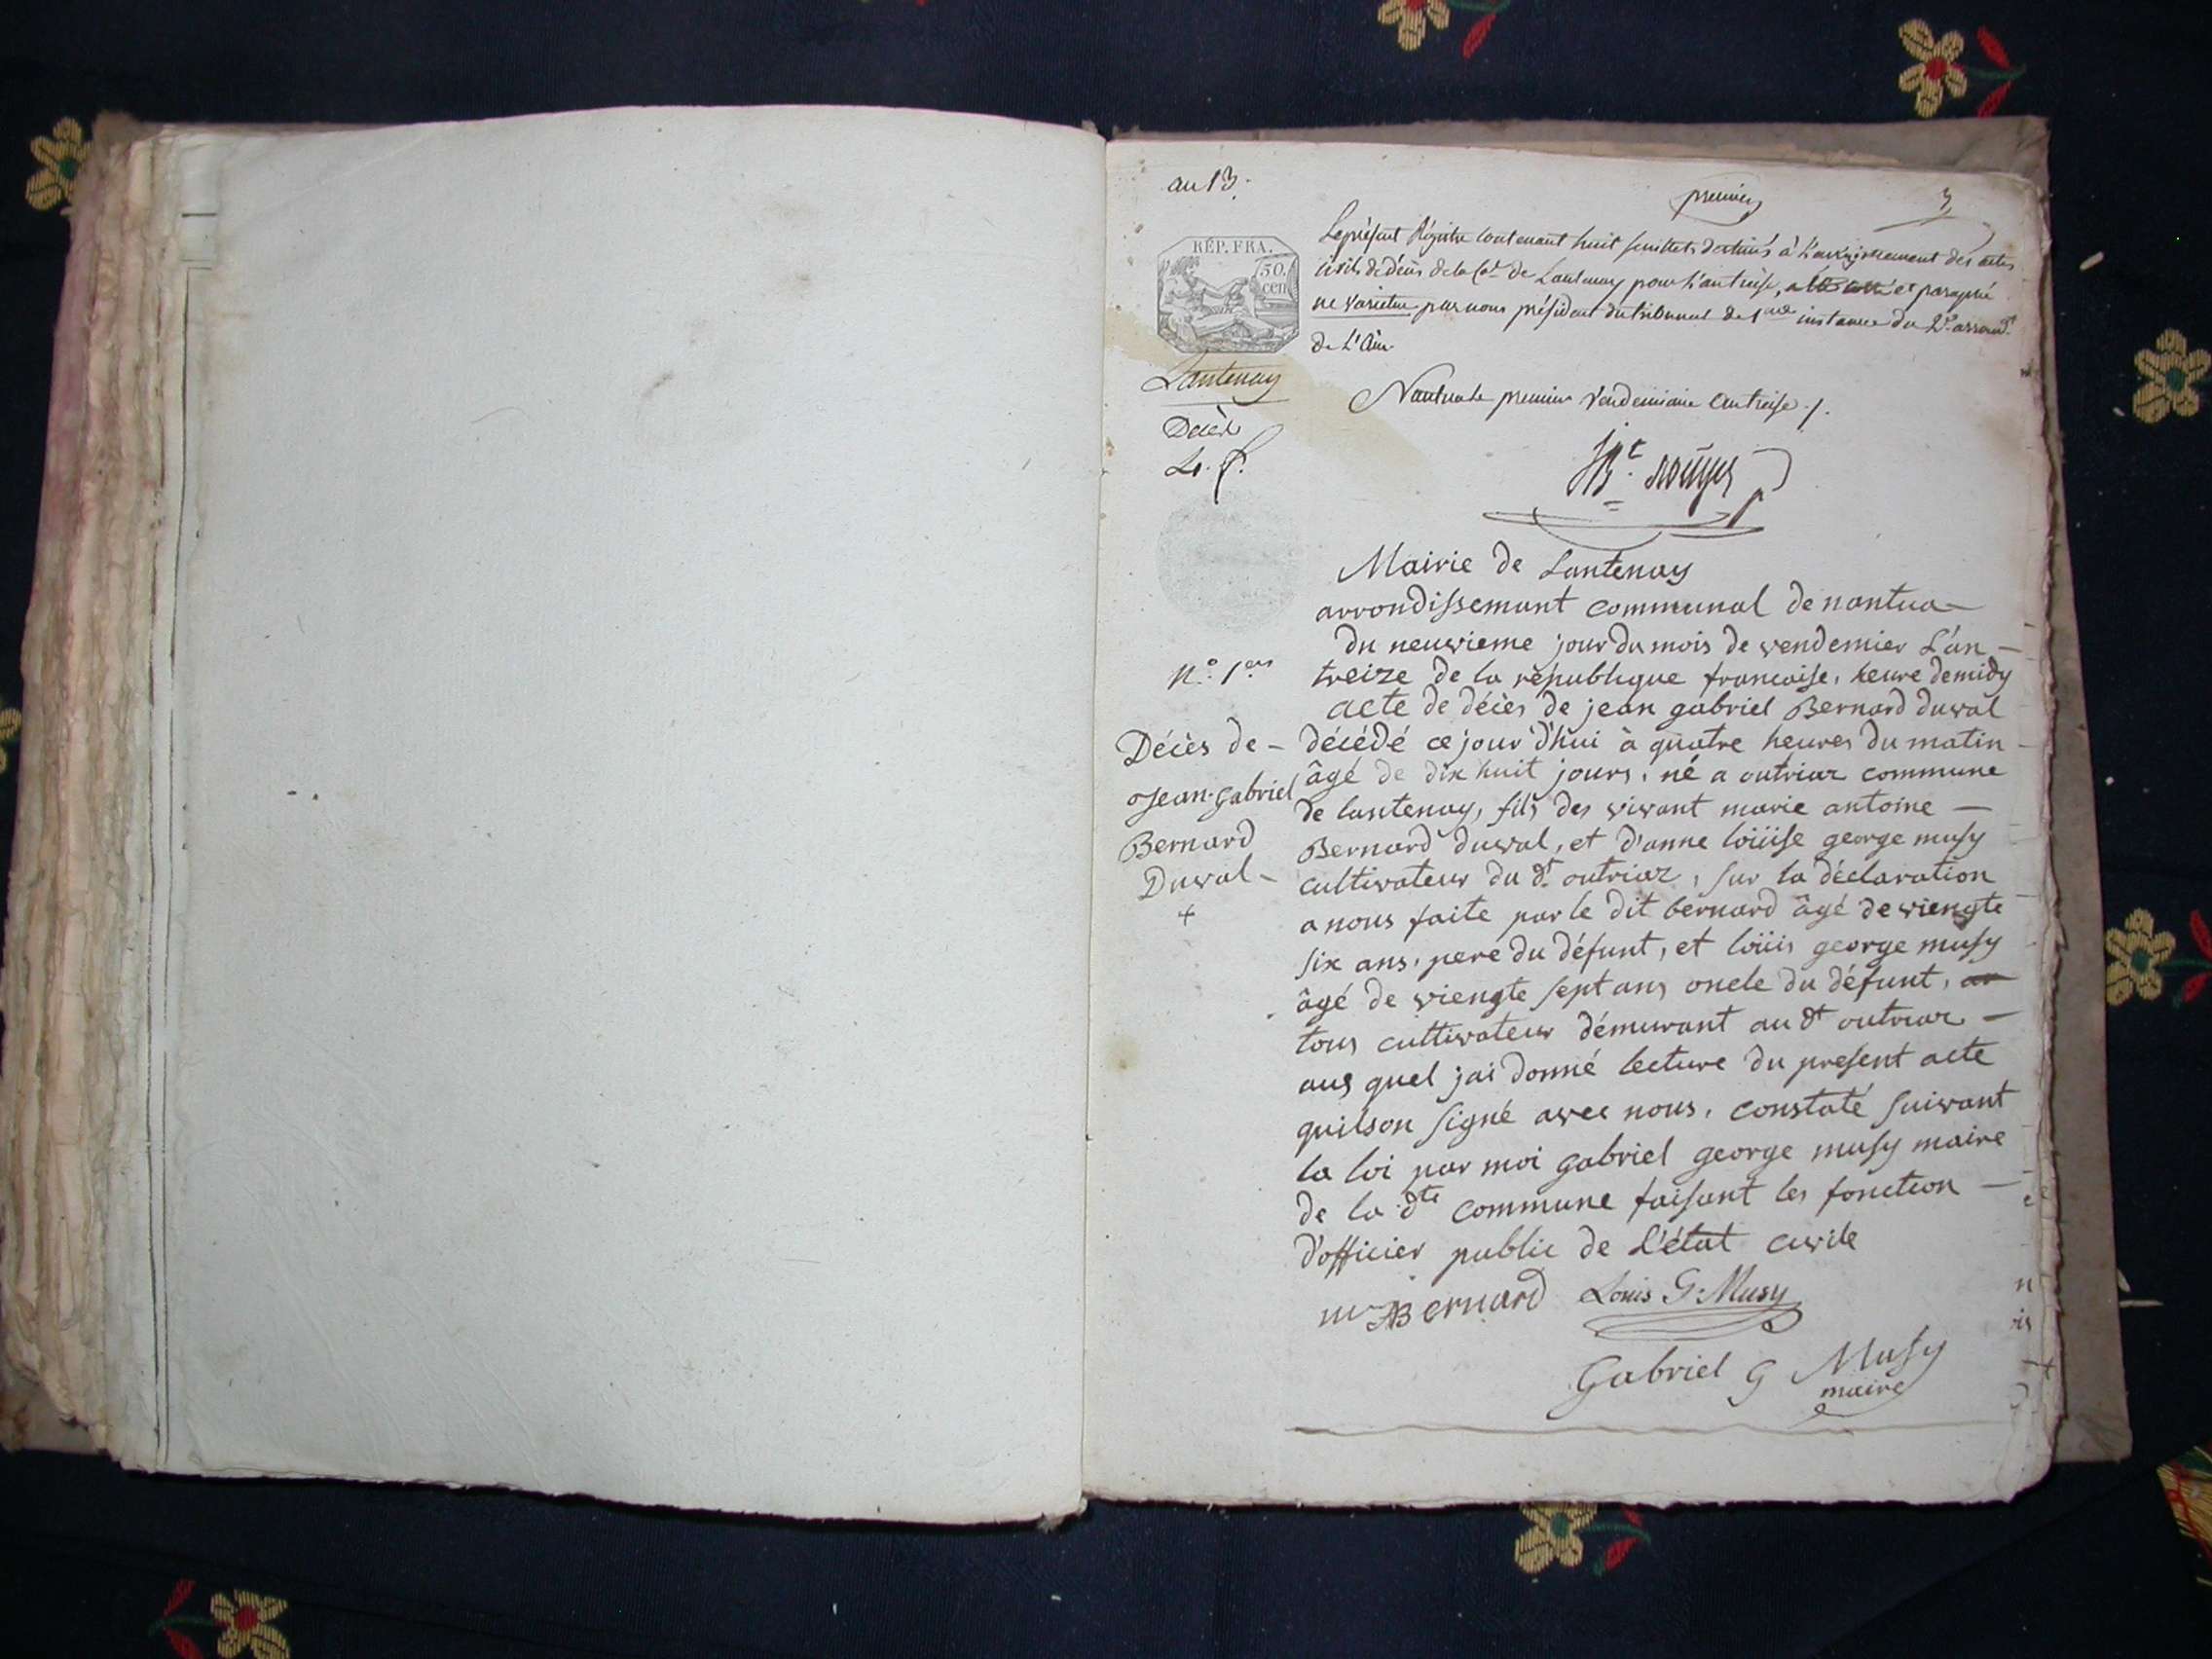 an 13.
premier
3
Le présent Régistre contenant huit feuillets destinés à L'enregistrement des actes
civils de décès de la Cne de Lantenay pour L'an treise, a été coté et paraphé
ne varietur par nous président du tribunal de 1ere instance du 2e arrondt
de L'Ain.
RÉP. FRA.
50.
cen
Lantenay
Décès
Nantua le premier Vendemiaire an treise ./.
Mairie de Lantenay
arrondissemant communal de nantua
du neuvieme jour du mois de vendemier L'an
N.o 1.er
treize de la république francaise, heure de midy
acte de décès de jean gabriel Bernard duval
Décès de
Jean-Gabriel
Bernard
Duval
décédé ce jour d'hui à quatre heures du matin
âgé de dix huit jours, né a outriaz commune
de lantenay, fils des vivant marie antoine
Bernard duval, et d'anne loüise george musy
cultivateur du dt outriaz, sur la déclaration
a nous faite par le dit bernard âgé de viengte
six ans, pere du défunt, et loüis george musy
âgé de viengte sept ans oncle du défunt,
tous cultivateur démurant au dt outriaz
aus quel jai donné lecture du present acte
quilson signé avec nous, constaté suivant
la loi par moi gabriel george musy maire
de la dte commune faisant les fonction
d'officier public de L'état civile
m A Bernard Louis G. Musy
Gabriel G Musy
maire